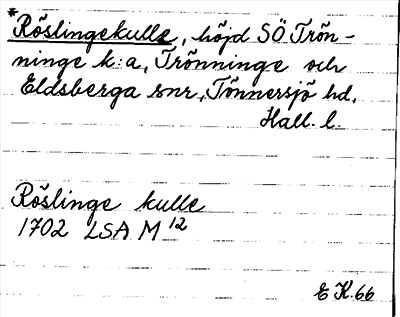 *Röslingekulle, höjd SÖ Trön-
ninge k:a, Trönninge och
Eldsberga snr, Tönnersjö hd,
Hall. l.
Röslinge kulle
1702 LSA M 12
E K. 66